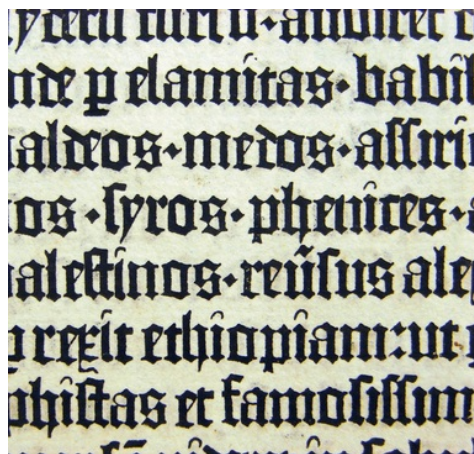 cursu·audiret
nde ꝑ elamitas·babil
aldeos·medos·assiri
tos·syros·phenices·
alestinos·reūsus ale
ꝑrexit ethiopiam:ut
phistas et famosissim